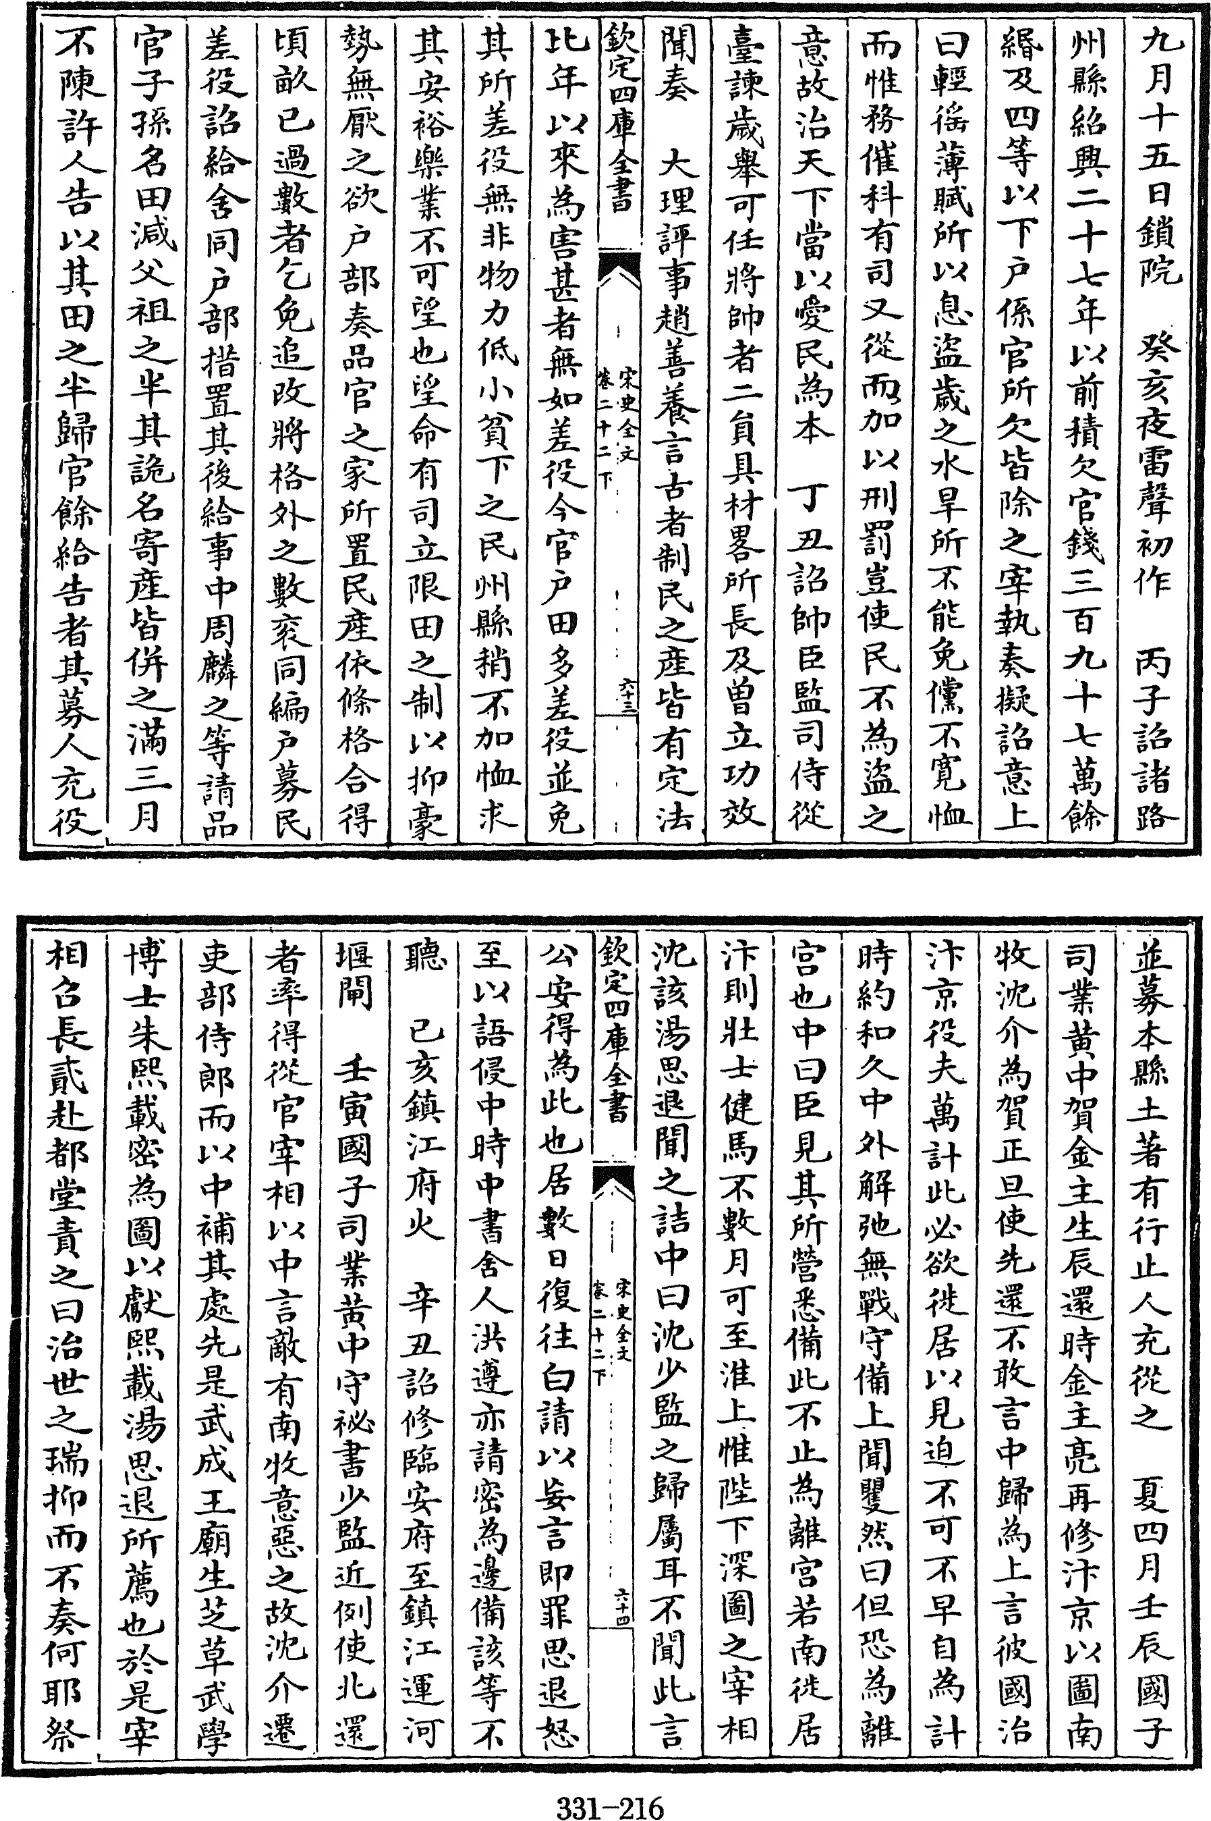 九月十五日鎖院　癸亥夜雷聲初作　丙子詔諸路
州縣紹興二十七年以前積欠官錢三百九十七萬餘
緡及四等以下戶係官所欠皆除之宰執奏擬詔意上
曰輕徭薄賦所以息盜歲之水旱所不能免儻不寛恤
而惟務催科有司又從而加以刑罰豈使民不為盜之
意故治天下當以愛民為本　丁丑詔帥臣監司侍從
臺諫歲舉可任將帥者二員具材畧所長及曽立功效
聞奏　大理評事趙善養言古者制民之産皆有定法
欽定四庫全書
宋史全文
卷二十二下
六十三
比年以來為害甚者無如差役今官戶田多差役並免
其所差役無非物力低小貧下之民州縣稍不加恤求
其安裕樂業不可望也望命有司立限田之制以抑豪
勢無厭之欲戶部奏品官之家所置民産依條格合得
頃畝已過數者乞免追改將格外之數衮同編戶募民
差役詔給舍同戶部措置其後給事中周麟之等請品
官子孫名田減父祖之半其詭名寄産皆併之滿三月
不陳許人告以其田之半歸官餘給告者其募人充役
並募本縣土著有行止人充從之　夏四月壬辰國子
司業黃中賀金主生辰還時金主亮再修汴京以圖南
牧沈介為賀正旦使先還不敢言中歸為上言彼國治
汴京役夫萬計此必欲徙居以見迫不可不早自為計
時約和久中外解弛無戰守備上聞矍然曰但恐為離
宮也中曰臣見其所營悉備此不止為離宮若南徙居
汴則壯士健馬不數月可至淮上惟陛下深圖之宰相
沈該湯思退聞之詰中曰沈少監之歸屬耳不聞此言
欽定四庫全書
宋史全文
卷二十二下
六十四
公安得為此也居數日復往白請以妄言即罪思退怒
至以語侵中時中書舍人洪遵亦請密為邊備該等不
聽　己亥鎮江府火　辛丑詔修臨安府至鎮江運河
堰閘　壬寅國子司業黃中守祕書少監近例使北還
者率得從官宰相以中言敵有南牧意惡之故沈介遷
吏部侍郎而以中補其處先是武成王廟生芝草武學
博士朱熙載密為圖以獻熙載湯思退所薦也於是宰
相召長貳赴都堂責之曰治世之瑞抑而不奏何耶祭
331-216